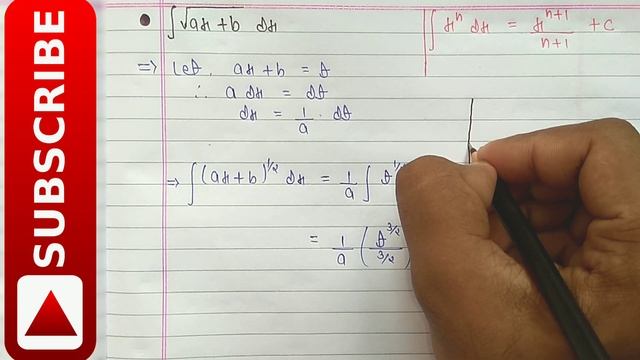 SUBSCRIBE
∫√ax+b dx
∫xⁿ dx = xⁿ⁺¹/n+1 + c
⇒ Let, ax+b = t
∴ a dx = dt
dx = 1/a · dt
⇒ ∫(ax+b)^1/2 dx = 1/a ∫ t
= 1/a (t^3/2 / 3/2)